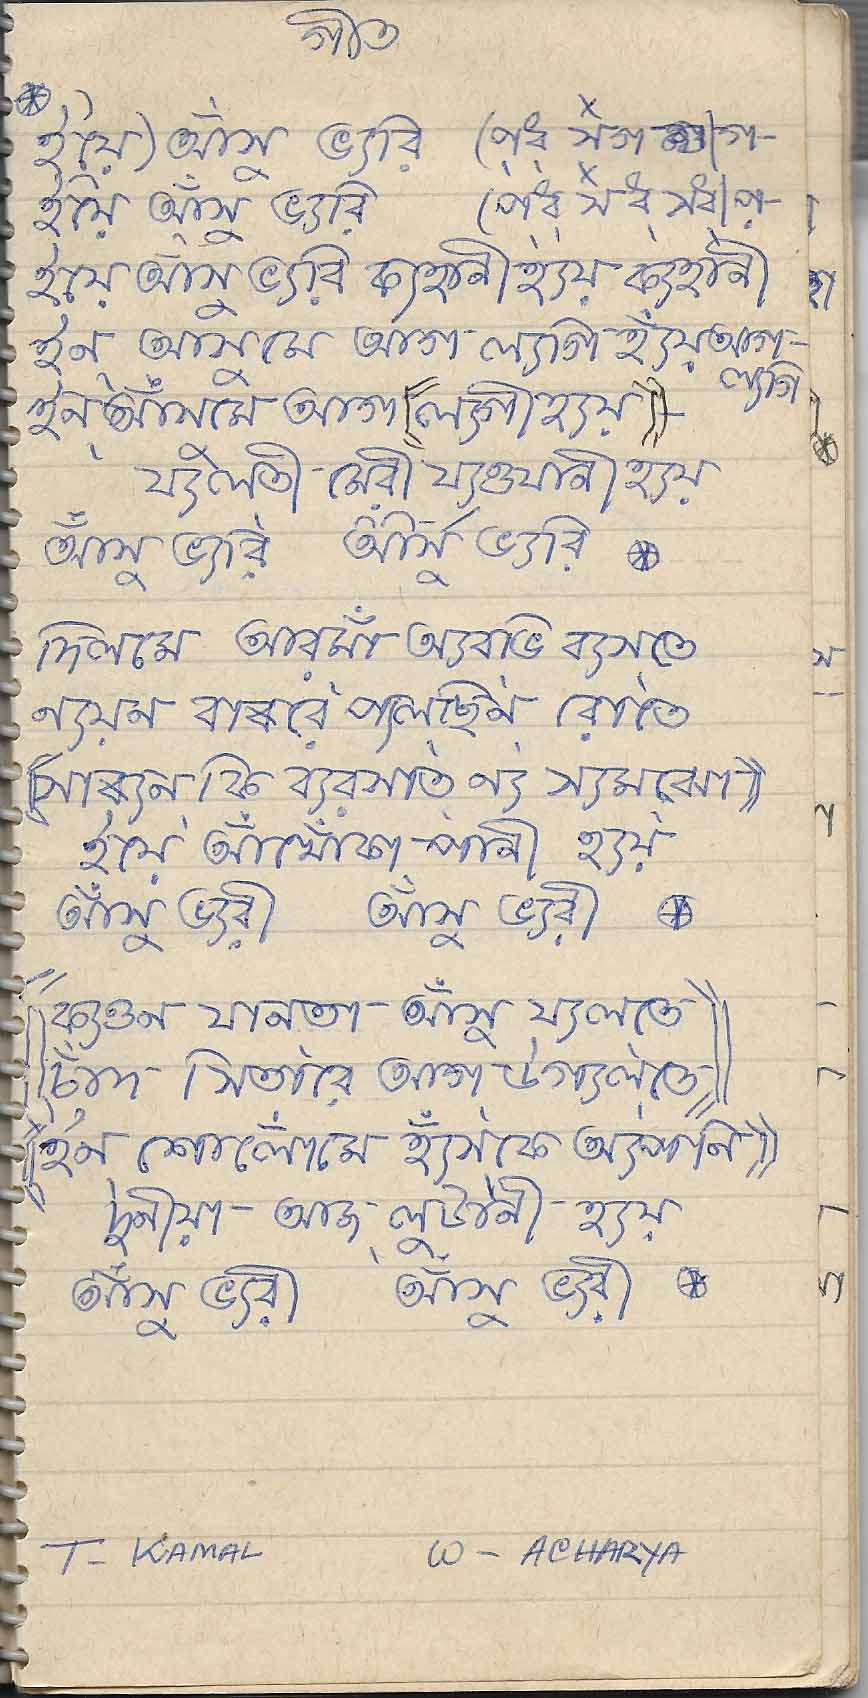 গীত
ইয়ে) আঁসু ভ্যরি (প়ধ় সগ গ-
ইয়ে আঁসু ভ্যরি (প়ধ় সধ় সধ়|প়-
ইয়ে আঁসু ভ্যরি ক্যহানী হ্যয় ক্যহানী
ইন্ আসুমে আগ ল্যগি হ্যঁয় আগ-
ল্যগি
ইন্ আঁসুমে আগ ((ল্যগী হ্যয়))
য্যলতী মেরী য্যওযানী হ্যয়
আঁসু ভ্যরি আঁসু ভ্যরি
দিলমে আরমাঁ অ্যরভি ব্যসতে
ন্যয়ন বাৱরে প্যলছিন রোতে
((সাৱ্যন কি ব্যরসাত ন্য স্যমঝো))
ইয়ে আঁখোকা পানী হ্যয়
আঁসু ভ্যরী আঁসু ভ্যরী
((ক্যওন যানতা আঁসু য্যলতে))
((চাঁদ সিতারে আগ উগ্যলতে))
((ইন্ শোলোঁমে হ্যঁসকে অ্যপনি))
দুনীয়া আজ লুটানী হ্যয়
আঁসু ভ্যরী আঁসু ভ্যরী
T- KAMAL W - ACHARYA